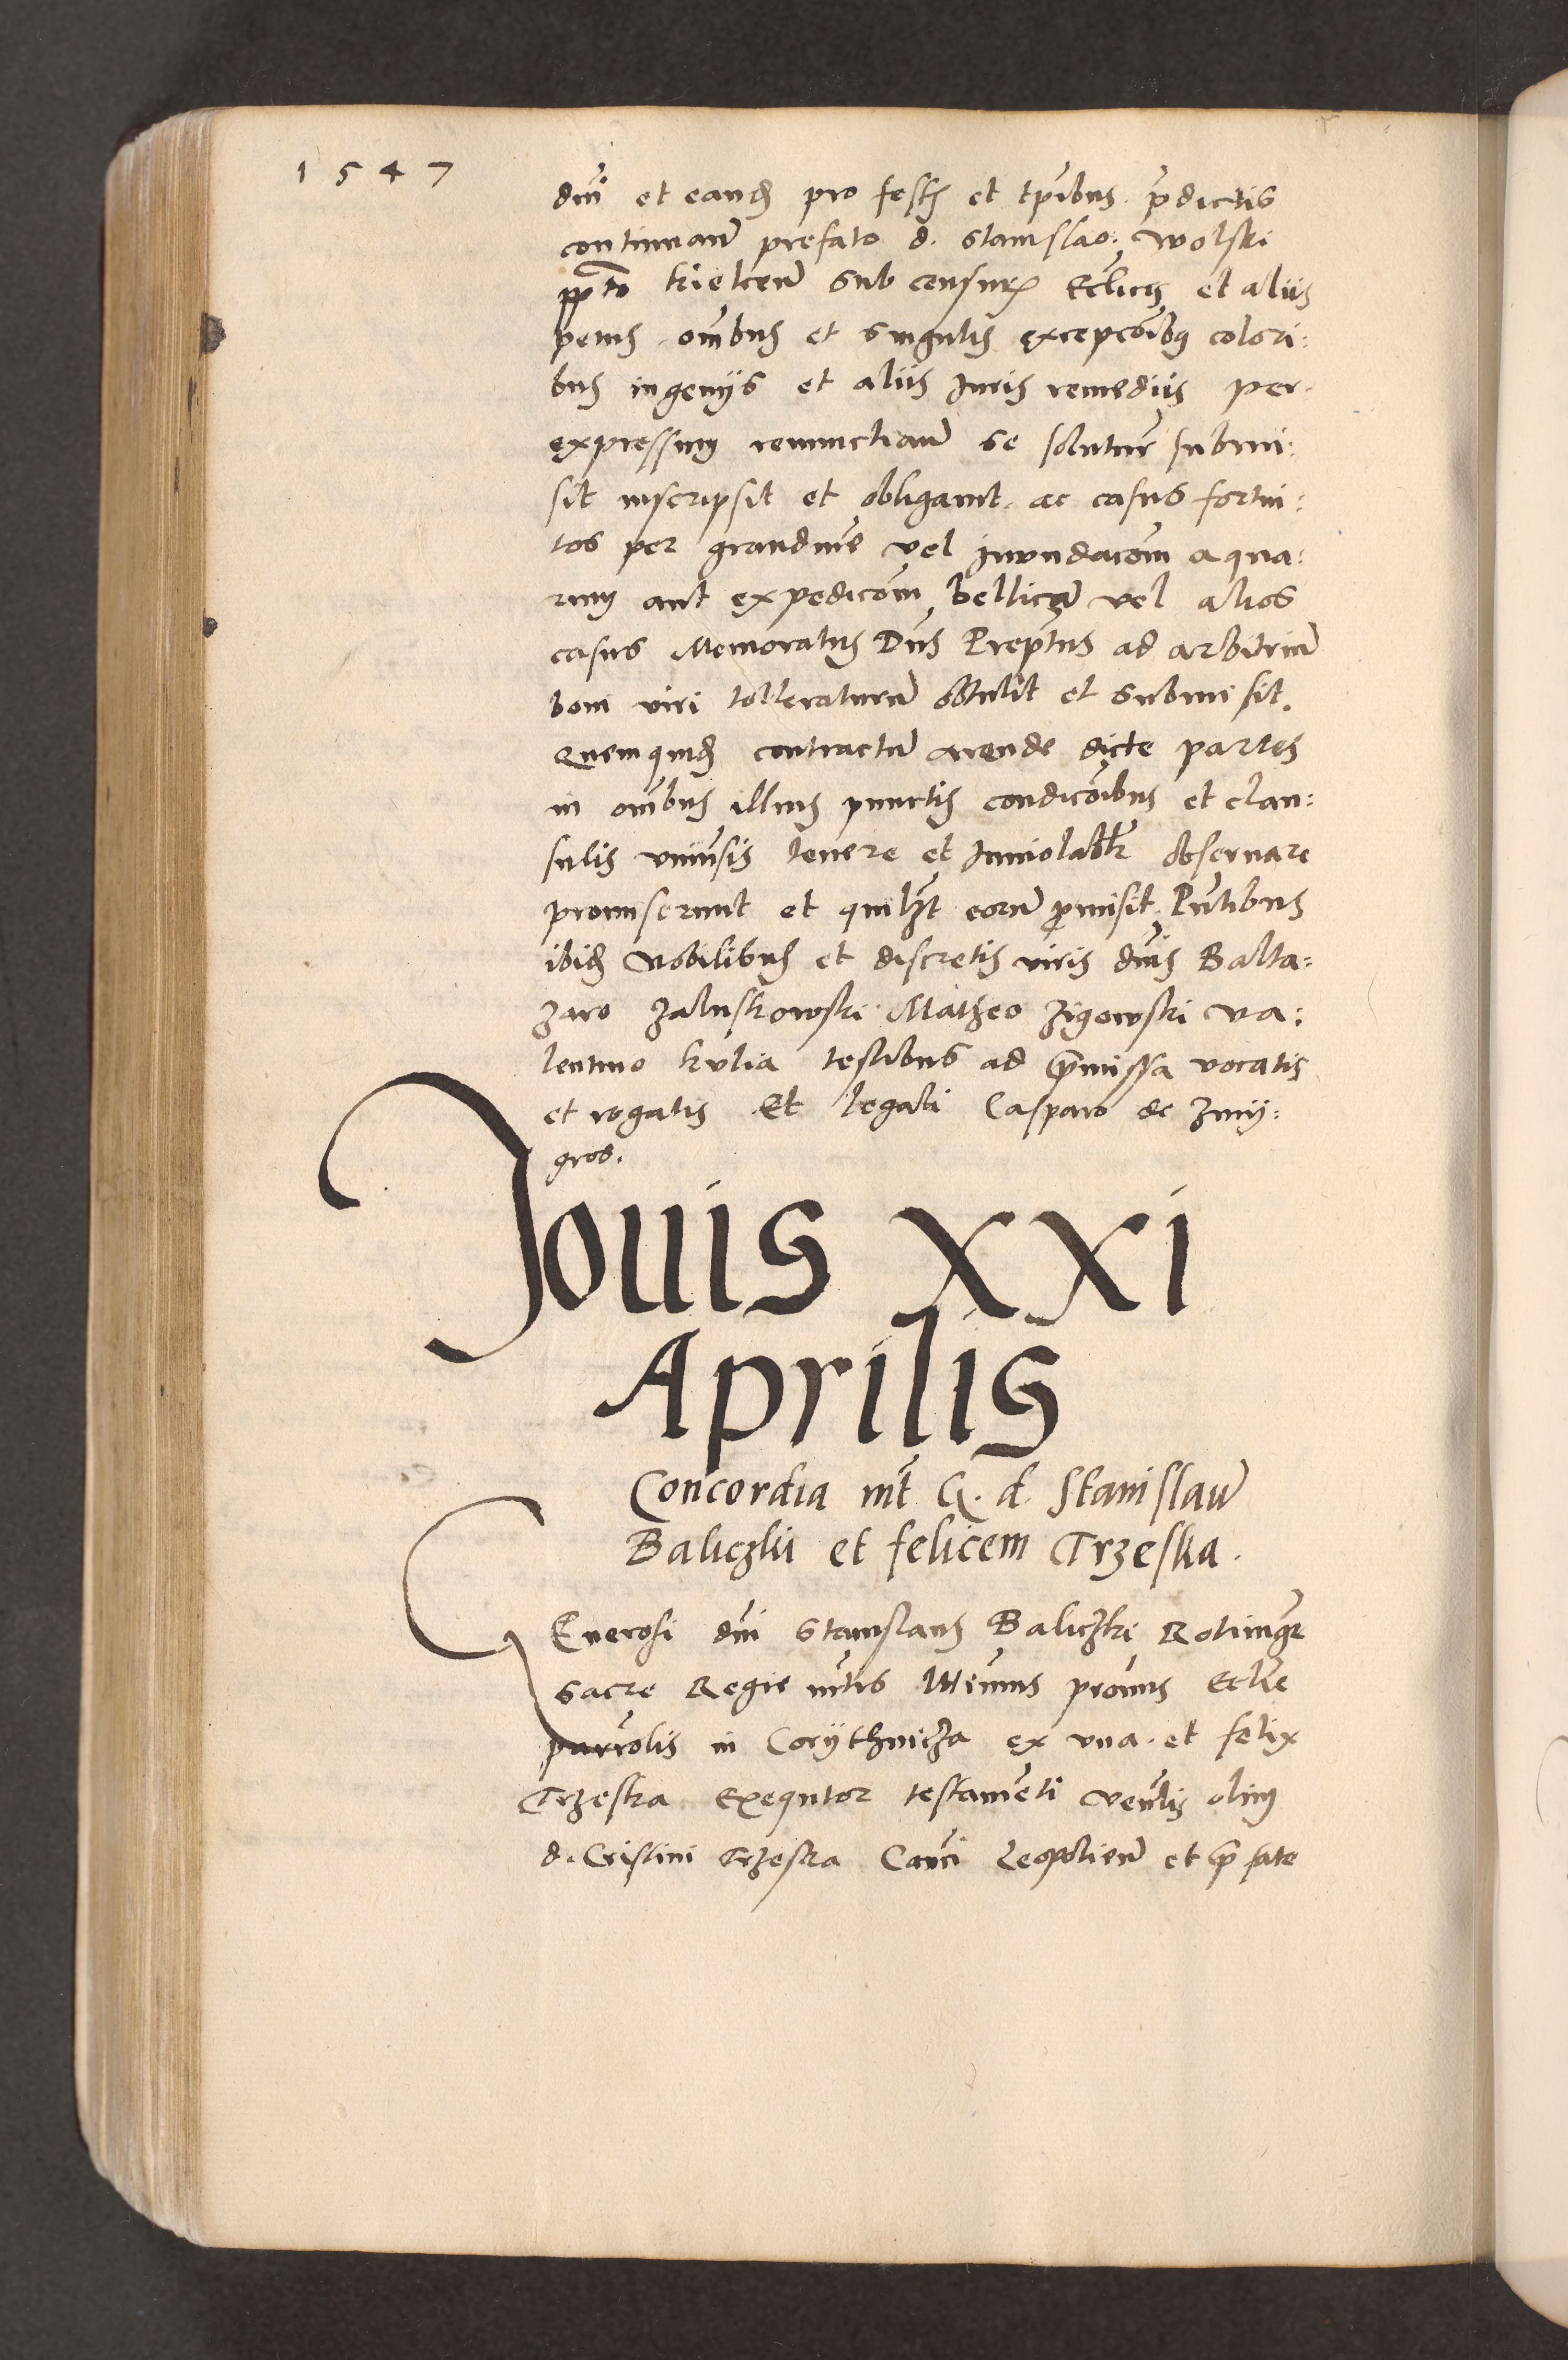 1547
dni et eand pro festis et tpibus pdictis
continuam prefato d. Stanislao Wolski
ppto kielcen sub censuris Ecclicis et aliis
penis omibus et singulis excepcoibus colori:
bus ingenijs et aliis Juris remediis per
expressum renunctiam se soluturum submi:
sit inscripsit et obligauit ac casus fortui:
tos per grandine vel Jnundacom aqua:
rum aut expedicom bellicam vel alios
casus Memoratus Dns Prepotus ad arbitrium
boni viri tolleraturum obtulit et submisit.
Quemquid contractum arende dicte partes
in omibus illius punctis condicoibus et clau:
sulis vniuersis tenere et Jnuiolabiliter obseruare
promiserunt et quilibet eorum promisit Pntibus
ibid Nobilibus et discretis viris dnis Balta:
zaro Zaluskowski Matheo Zigowski Va:
lentino kulia testibus ad premissa vocatis
et rogatis Et legali Casparo de Zmij:
grod.
Jouis XXI
Aprilis
Concordia int G. d. Stanislaum
Baliczki et felicem Trzeska.
GEnerosi dni Stanislaus Baliczki Rotimgr
Sacre Regie mtis pronus Eccle
parrolis in Corijthnicza ex vna et felix
Trzeska Exequtor testamenti venlis olim
d. Cristini Trzeska Canci Leopolien et prefate